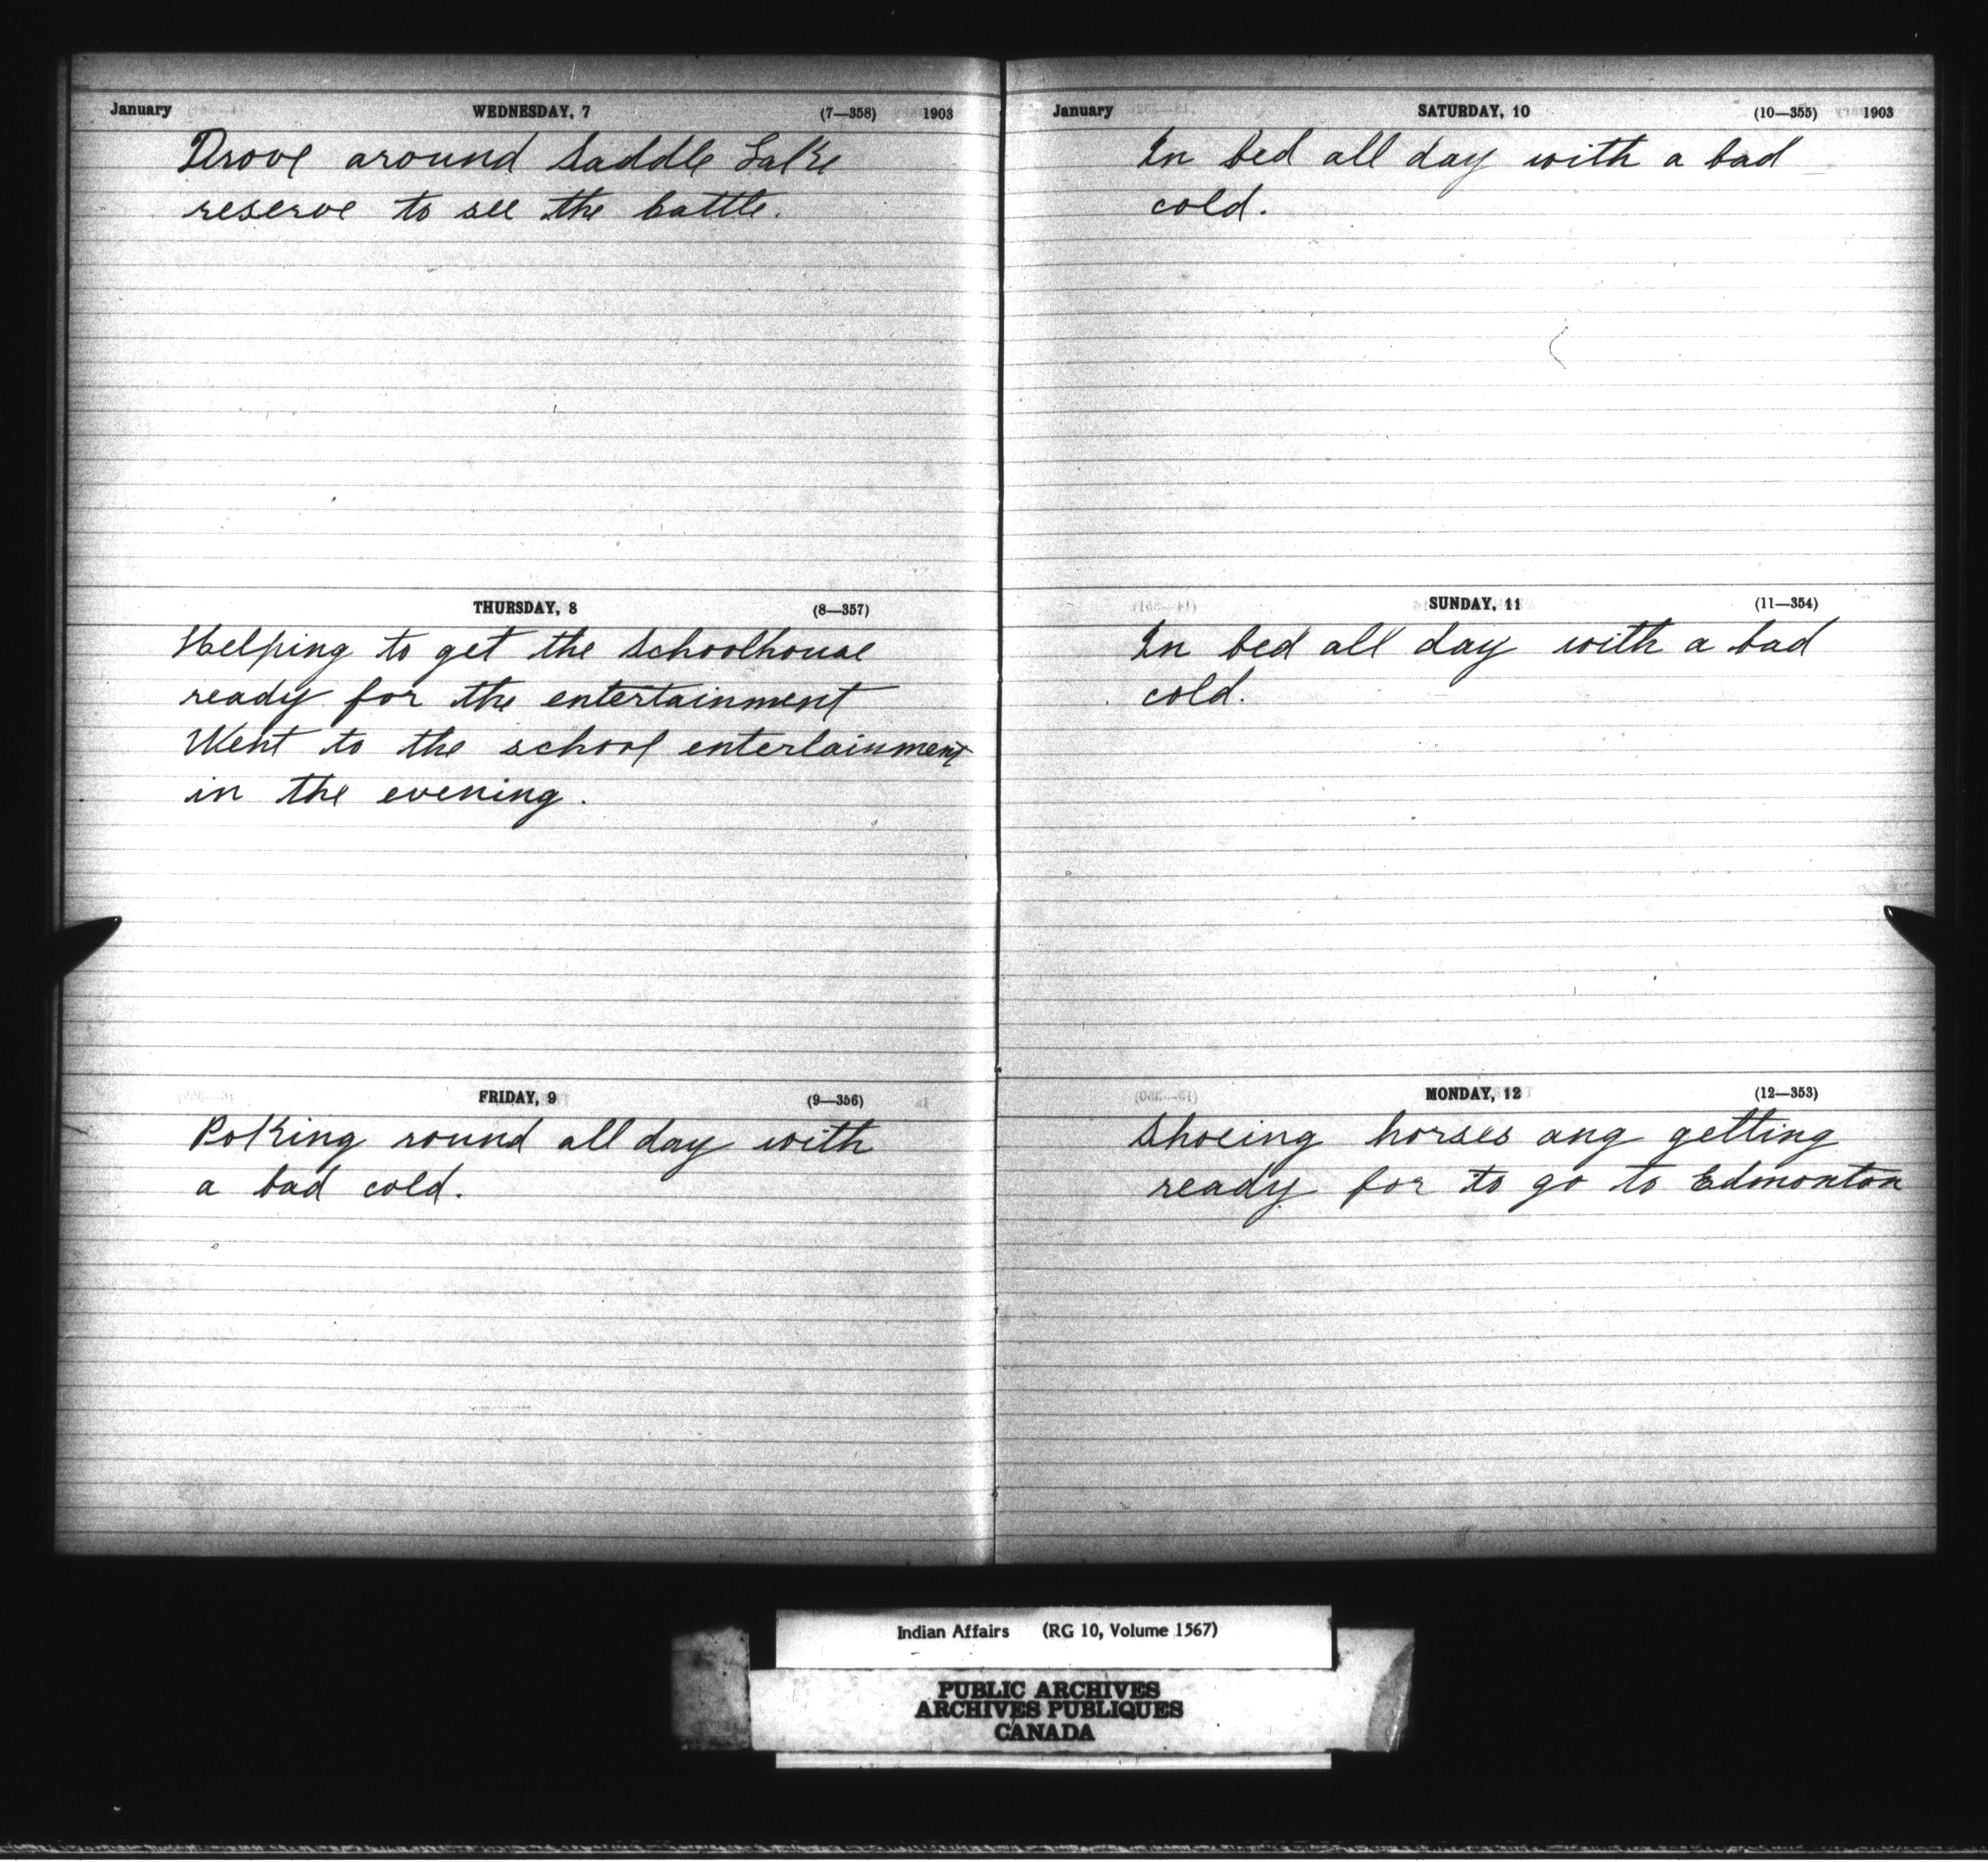 January WEDNESDAY, 7 (7—358) 1903
Drove around Saddle Lake
reserve to see the cattle.
THURSDAY, 8 (8—357)
Helping to get the Schoolhouse
ready for the entertainment
Went to the school entertainment
in the evening.
FRIDAY, 9 (9—356)
Poking round all day with
a bad cold.
January SATURDAY, 10 (10—355) 1903
In bed all day with a bad
cold.
SUNDAY, 11 (11—354)
In bed all day with a bad
cold.
MONDAY, 12 (12—353)
Shoeing horses ang getting
ready for to go to Edmonton
Indian Affairs (RG 10, Volume 1567)
PUBLIC ARCHIVES
ARCHIVES PUBLIQUES
CANADA